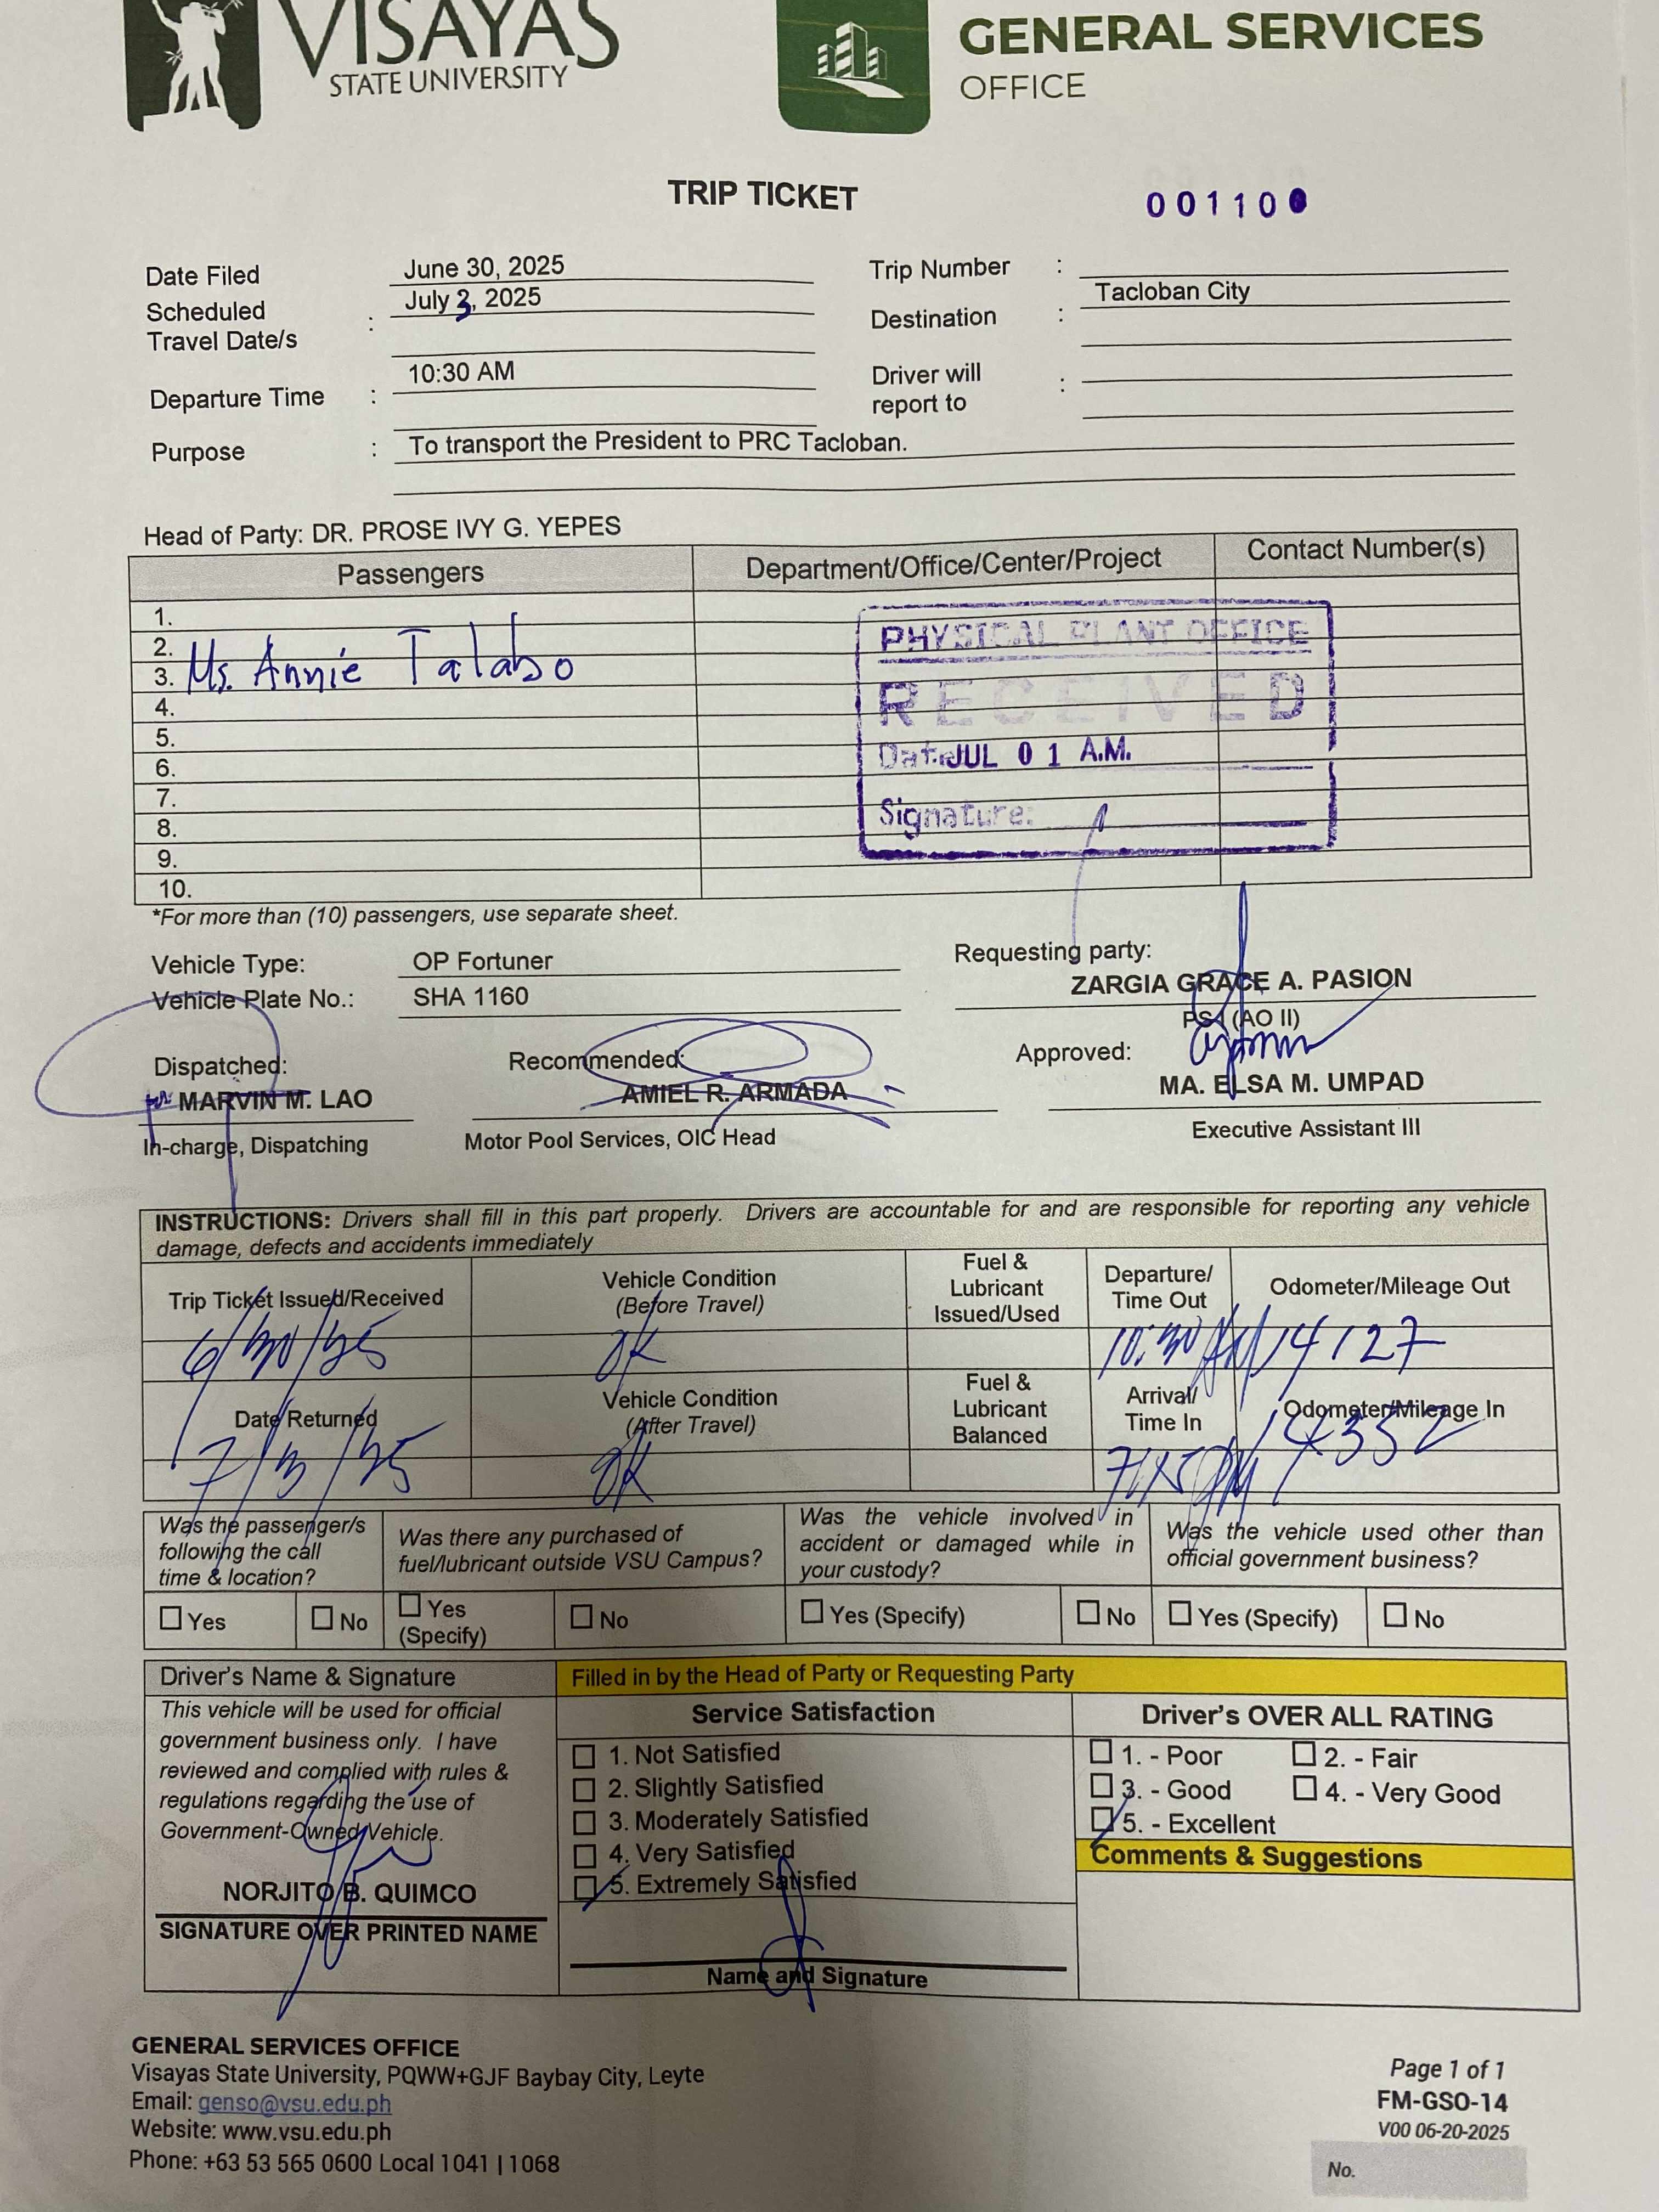 VISAYAS
STATE UNIVERSITY
GENERAL SERVICES
OFFICE
TRIP TICKET
00110
Date Filed June 30, 2025
Trip Number :
Scheduled Travel Date/s : July 3, 2025
Destination : Tacloban City
Departure Time : 10:30 AM
Driver will report to :
Purpose : To transport the President to PRC Tacloban.
Head of Party: DR. PROSE IVY G. YEPES
Passengers Department/Office/Center/Project Contact Number(s)
1.
2.
3. Ms. Annie Talabo
4.
5.
6.
7.
8.
9.
10.
PHYSICAL PLANT OFFICE
RECEIVED
Date: JUL 01 A.M.
Signature:
*For more than (10) passengers, use separate sheet.
Vehicle Type: OP Fortuner
Vehicle Plate No.: SHA 1160
Requesting party:
ZARGIA GRACE A. PASION
(AO II)
Dispatched:
MARVIN M. LAO
In-charge, Dispatching
Recommended:
AMIEL R. ARMADA
Motor Pool Services, OIC Head
Approved:
MA. ELSA M. UMPAD
Executive Assistant III
INSTRUCTIONS: Drivers shall fill in this part properly. Drivers are accountable for and are responsible for reporting any vehicle
damage, defects and accidents immediately
Trip Ticket Issued/Received
Vehicle Condition
(Before Travel)
Fuel &
Lubricant
Issued/Used
Departure/
Time Out
Odometer/Mileage Out
6/30/25 OK 10:30 AM 14127
Date Returned
Vehicle Condition
(After Travel)
Fuel &
Lubricant
Balanced
Arrival/
Time In
Odometer/Mileage In
7/3/25 OK 14352
Was the passenger/s
following the call
time & location?
Was there any purchased of
fuel/lubricant outside VSU Campus?
Was the vehicle involved in
accident or damaged while in
your custody?
Was the vehicle used other than
official government business?
Yes No Yes (Specify) No Yes (Specify) No Yes (Specify) No
Driver's Name & Signature
This vehicle will be used for official
government business only. I have
reviewed and complied with rules &
regulations regarding the use of
Government-Owned Vehicle.
NORJITO B. QUIMCO
SIGNATURE OVER PRINTED NAME
Filled in by the Head of Party or Requesting Party
Service Satisfaction
1. Not Satisfied
2. Slightly Satisfied
3. Moderately Satisfied
4. Very Satisfied
5. Extremely Satisfied
Name and Signature
Driver's OVER ALL RATING
1. - Poor 2. - Fair
3. - Good 4. - Very Good
5. - Excellent
Comments & Suggestions
GENERAL SERVICES OFFICE
Visayas State University, PQWW+GJF Baybay City, Leyte
Email: genso@vsu.edu.ph
Website: www.vsu.edu.ph
Phone: +63 53 565 0600 Local 1041 | 1068
Page 1 of 1
FM-GSO-14
V00 06-20-2025
No.